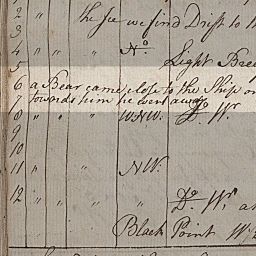 2
3 the Ice we find Drift to th
4 " " " No.
5 Light Bree
6 a Bear came close to the Ship on
7 towards him he went away
8 " " " WNW. Do. Wr.
9
10
11 " " " NW.
12 " " " " Do. Wr. a
Black Point W